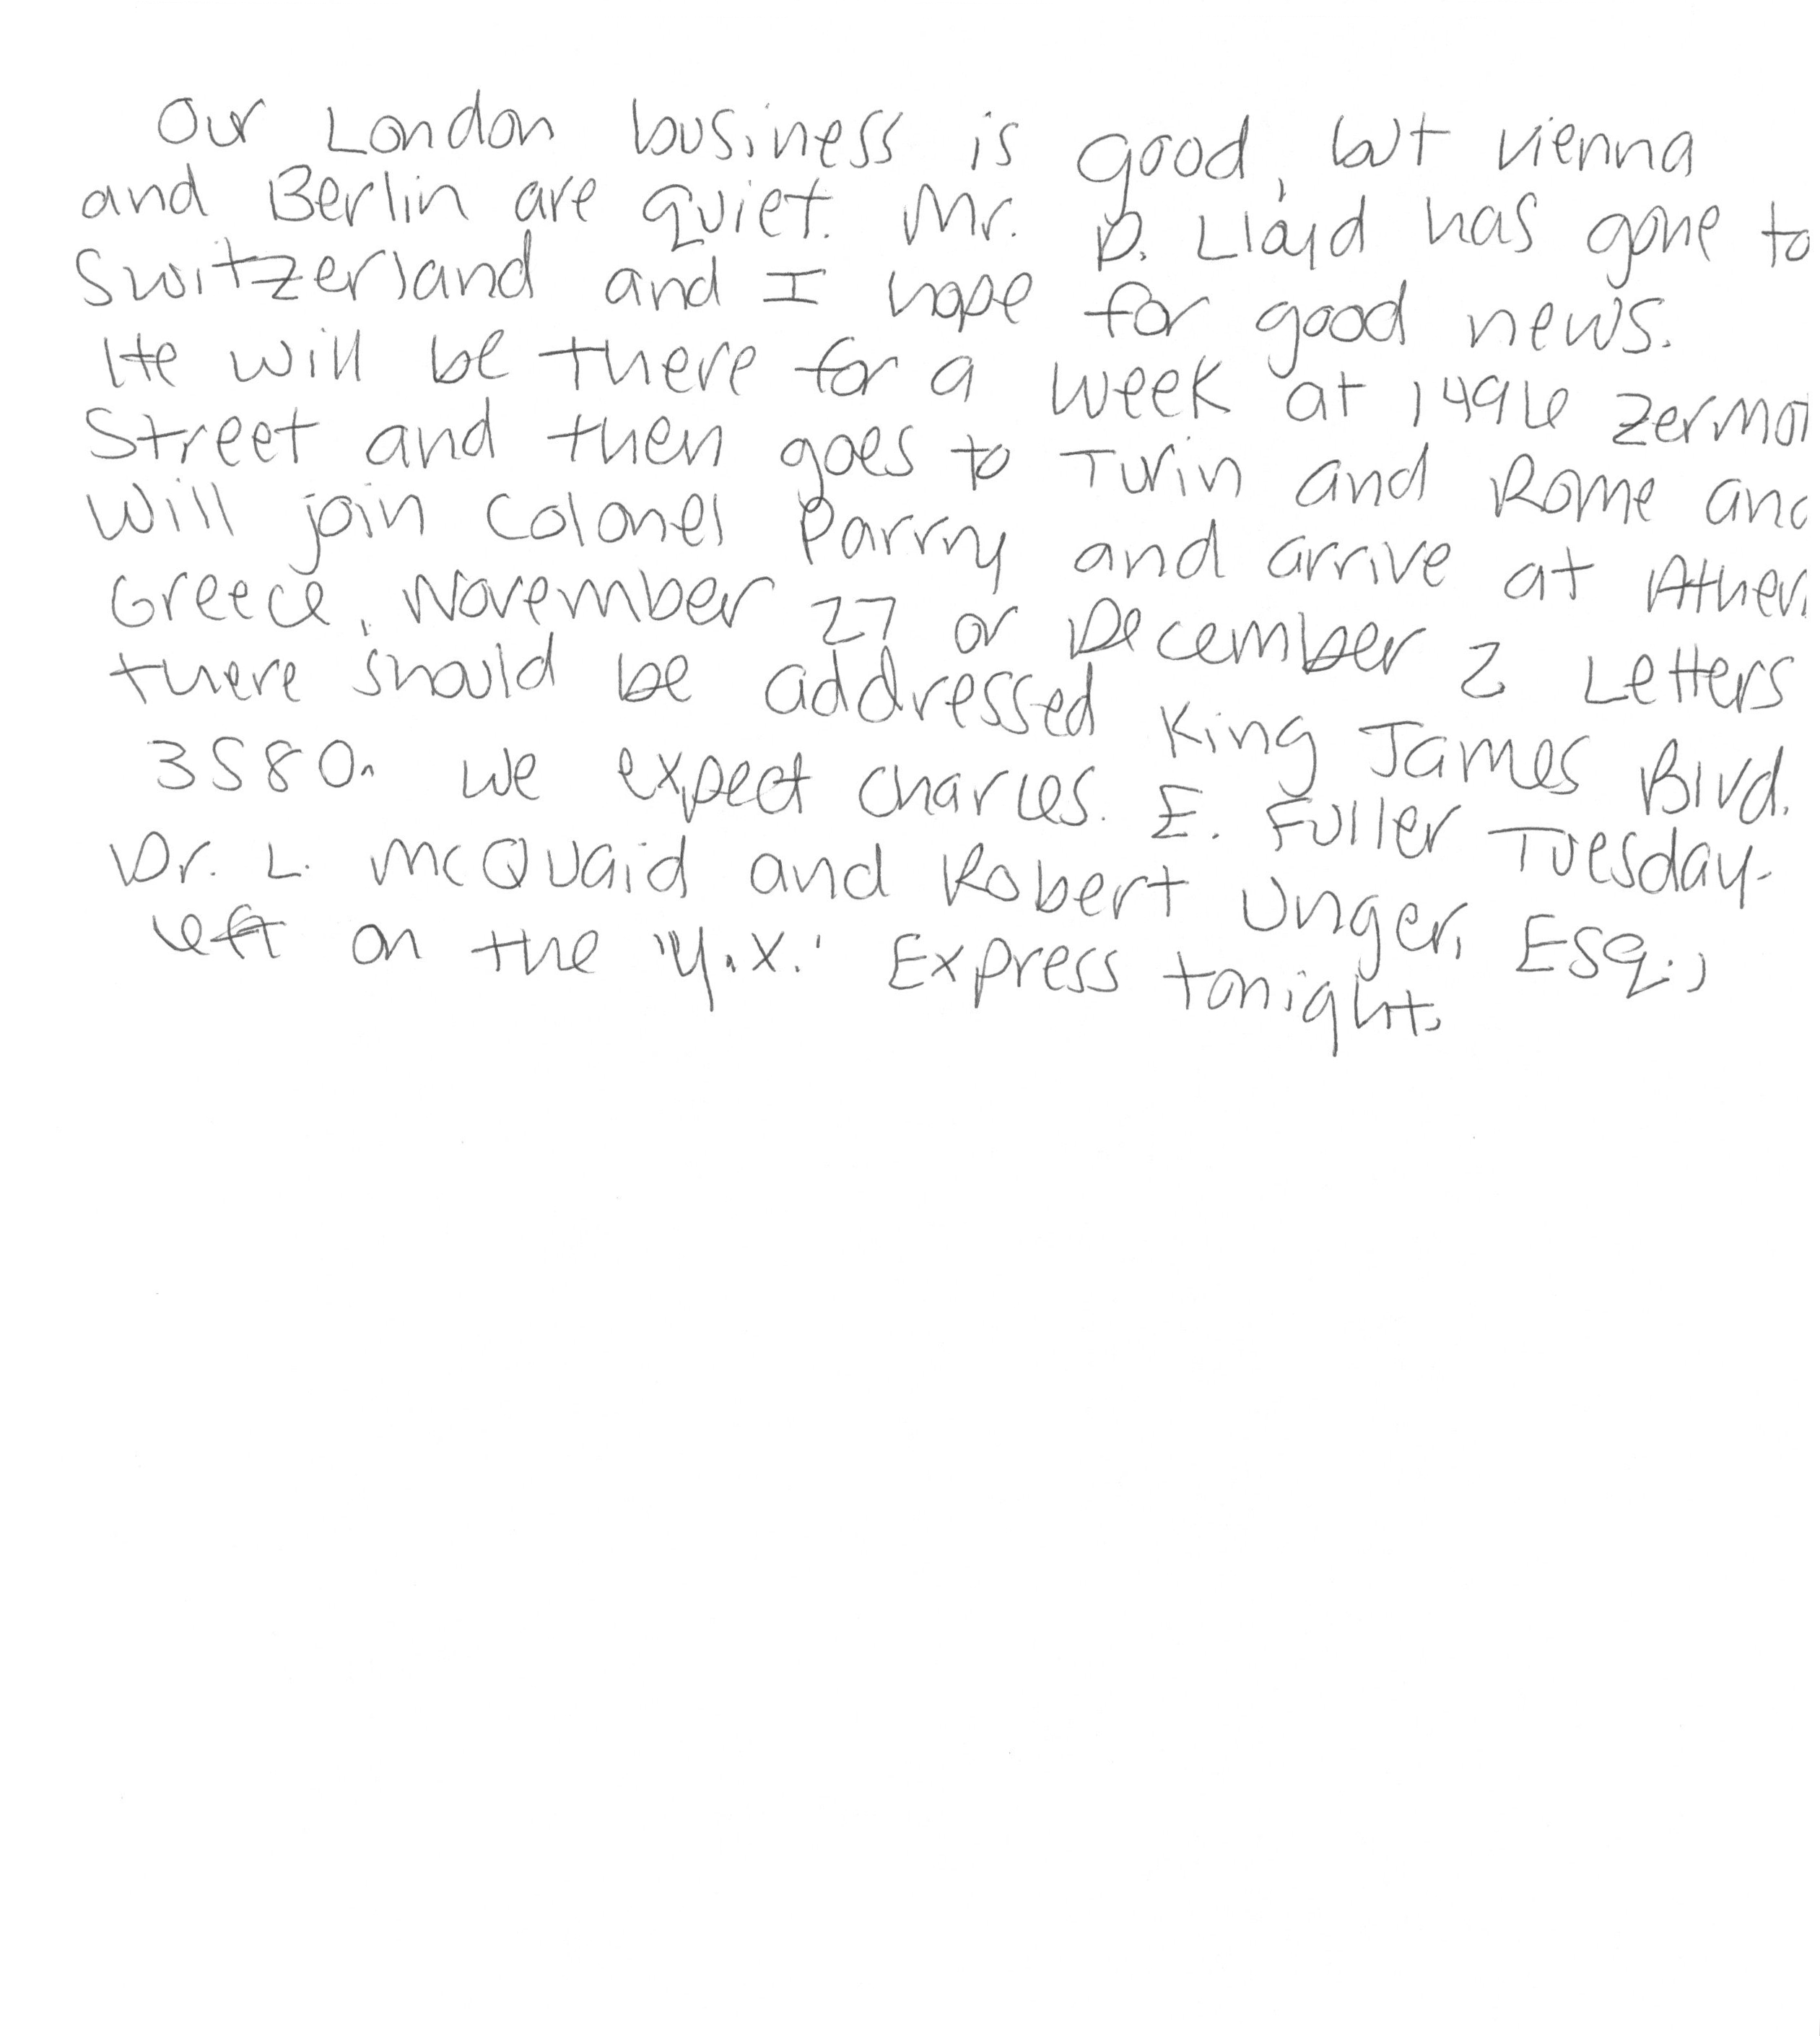 Our London business is good, but Vienna
and Berlin are quiet. Mr. D. Lloyd has gone to
Switzerland and I hope for good news.
He will be there for a week at 1496 Zermot
Street and then goes to Turin and Rome and
will join Colonel Parry and arrive at Athen
Greece, November 27 or December 2 Letters
there should be addressed King James Blvd.
3580. We expect Charles. E. Fuller Tuesday.
Dr. L. McQuaid and Robert Unger, Esq.,
left on the "Y.X." Express tonight.